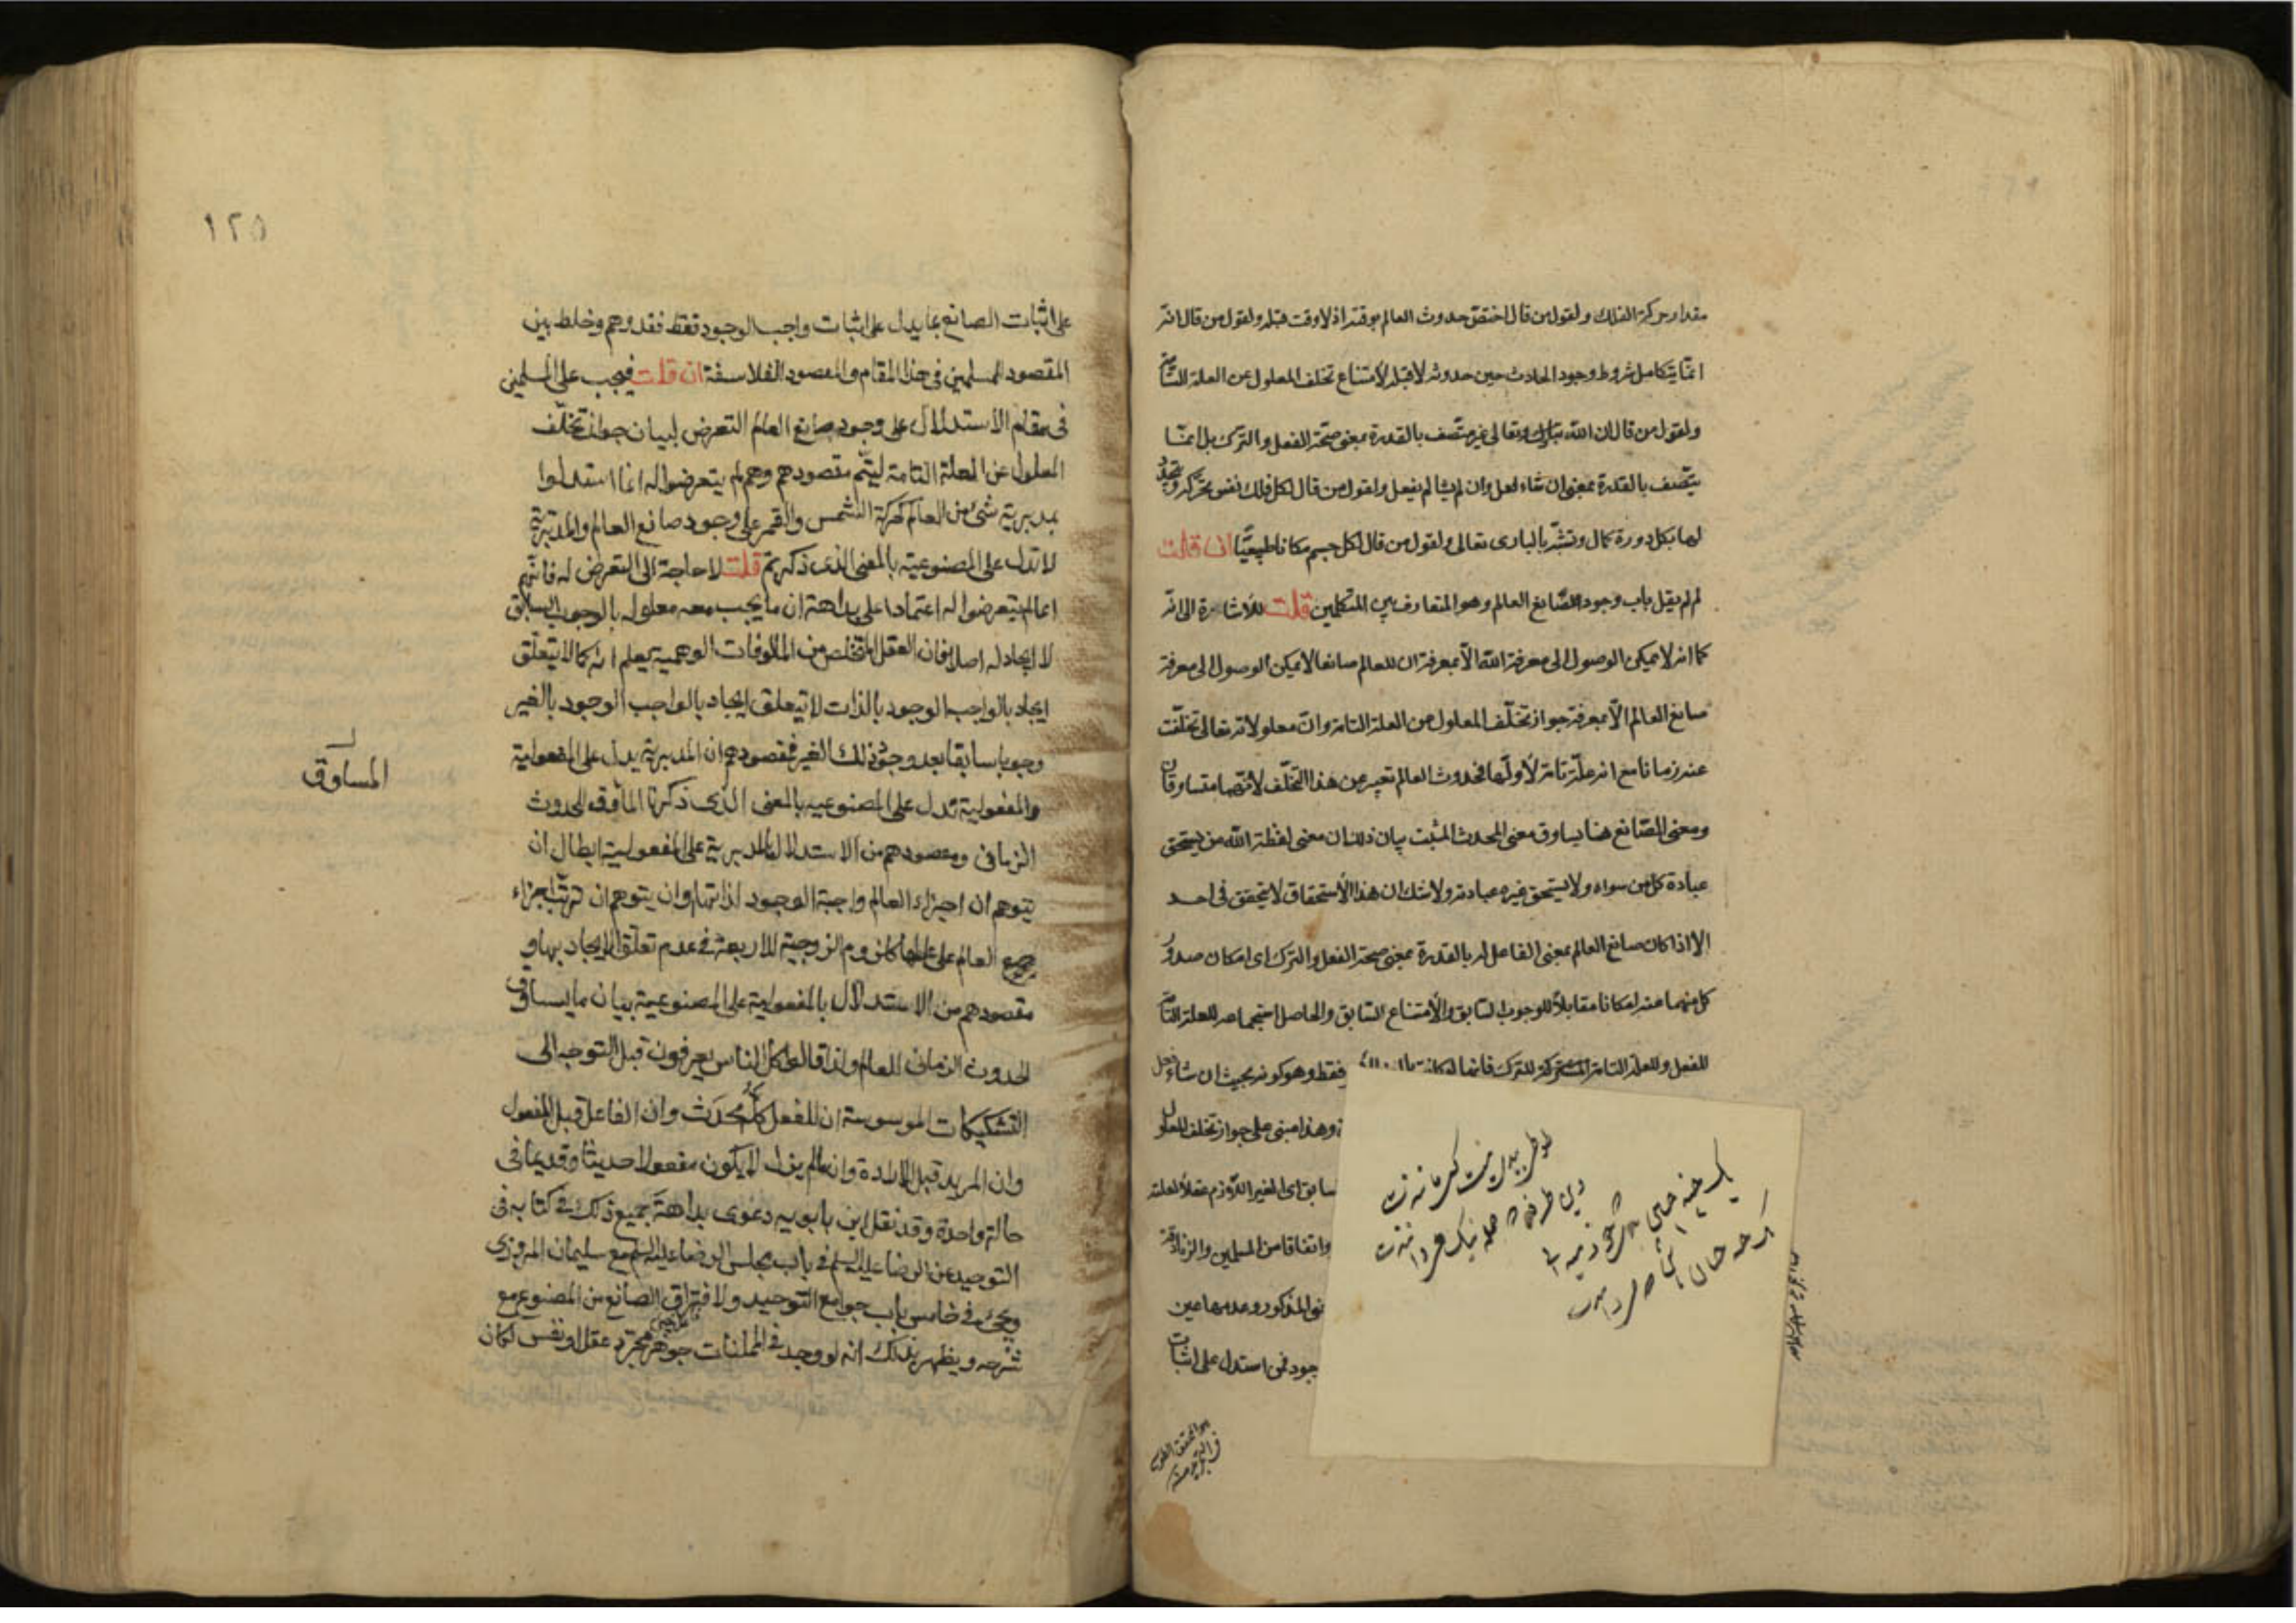 مقدار حركة الفلك ولقول من قال اختص حدوث العالم بوقته اذ لا وقت قبله ولقول من قال انه
انما يتكامل شروط وجود الحادث حين حدوثه لا قبله لأمتناع تخلف المعلول عن العلة التامة
ولقول من قال ان الله تبارك وتعالى غير متصف بالقدرة بمعنى صحة الفعل والترك بل انما
يتصف بالقدرة بمعنى ان شاء فعل وان لم يشا لم يفعل ولقول من قال لكل فلك نفس تحركه وتجدد
لها بكل دورة كمال وتشبه بالبارى تعالى ولقول من قال لكل جسم مكانا طبيعيا ان قلت
لم لم يقل باب وجود الصانع العالم وهو المتعارف بين المتكلمين قلت للأشارة الى انه
كما انه لا يمكن الوصول الى معرفة الله الا بمعرفة ان للعالم صانعا لا يمكن الوصول الى معرفة
صانع العالم الا بمعرفة جواز تخلف المعلول من العلة التامة وان معلولاته تعالى تخلفت
عنه زمانا مع انه علة تامة لأولها فحدوث العالم تعبير عن هذا التخلف لأنهما متساوقان
ومعنى الصانع هنا يساوق معنى المحدث المثبت بيان ذلك ان معنى لفظة الله من يستحق
عبادة كل من سواه ولا يستحق غيره عبادته ولا شك ان هذا الأستحقاق لا يتحقق فى احد
الا اذا كان صانع العالم بمعنى الفاعل له بالقدرة بمعنى صحة الفعل والترك اى امكان صدور
كل منهما عنه امكانا مقابلا للوجوب السابق والأمتناع السابق والحاصل استجماعه للعلة التامة
للفعل وللعلة التامة للترك فانها فقط وهو كونه بحيث ان شاء فعل
وهذا مبنى على جواز تخلف المعلول
سابق اى الغير اللازم عقلا لعلته
واتفاقا من المسلمين والزنادقة
المذكور وعدمها عين
جود فمن استدل على اثبات
١٢٥
على اثبات الصانع بما يدل على اثبات واجب الوجود فقط فقد وهم وخلط بين
المقصود للمسلمين فى هذا المقام والمقصود للفلاسفة ان قلت فيجب على المسلمين
فى مقام الاستدلال على وجود صانع العالم التعرض لبيان جواز تخلف
المعلول عن العلة التامة ليتم مقصودهم وهم لم يتعرضوا له انما استدلوا
بمدبرية شئ من العالم كحركة الشمس والقمر على وجود صانع العالم والمدبرية
لا تدل على المصنوعية بالمعنى الذى ذكرتم قلت لا حاجة الى التعرض له فانهم
انما لم يتعرضوا له اعتمادا على بداهة ان ما يجب معه معلوله بالوجوب السابق
لا ايجاد له اصلا فان العقل المتخلص من المألوفات الوهمية يعلم انه كما لا يتعلق
ايجاد بالواجب الوجود بالذات لا يتعلق ايجاد بالواجب الوجود بالغير
وجوبا سابقا بعد وجود ذلك الغير فمقصودهم ان المدبرية يدل على المفعولية
والمفعولية تدل على المصنوعية بالمعنى الذى ذكرنا للحدوث
المساوق
الزمانى ومقصودهم من الاستدلال بالمدبرية على المفعولية ابطال ان
يتوهم ان اجزاء العالم واجبة الوجود لذاتها وان يتوهم ان ترتب اجزاء
جميع العالم على عللها كلزوم الزوجية للاربعة فى عدم تعلق الايجاد بها و
مقصودهم من الاستدلال بالمفعولية على المصنوعية بيان ما يساوق
الحدوث الزمانى للعالم ولذا قالوا كل الناس يعرفون قبل التوجه الى
التشكيكات الموسوسة ان للفعل كله محدث وان الفاعل قبل المفعول
وان المريد قبل الارادة وان ما لم يزل لا يكون مفعولا حديثا وقديما فى
حالة واحدة وقد نقل ابن بابويه دعوى بداهة جميع ذلك فى كتابه فى
التوحيد عن الرضا عليه السلم فى باب مجلس الرضا عليه السلم مع سليمان المروزى
ويجئ فى خامس باب جوامع التوحيد ولا فتراق الصانع من المصنوع مع
شرحه ويظهر بذلك انه لو وجد فى الممكنات جوهر مجرد عقل او نفس لكان